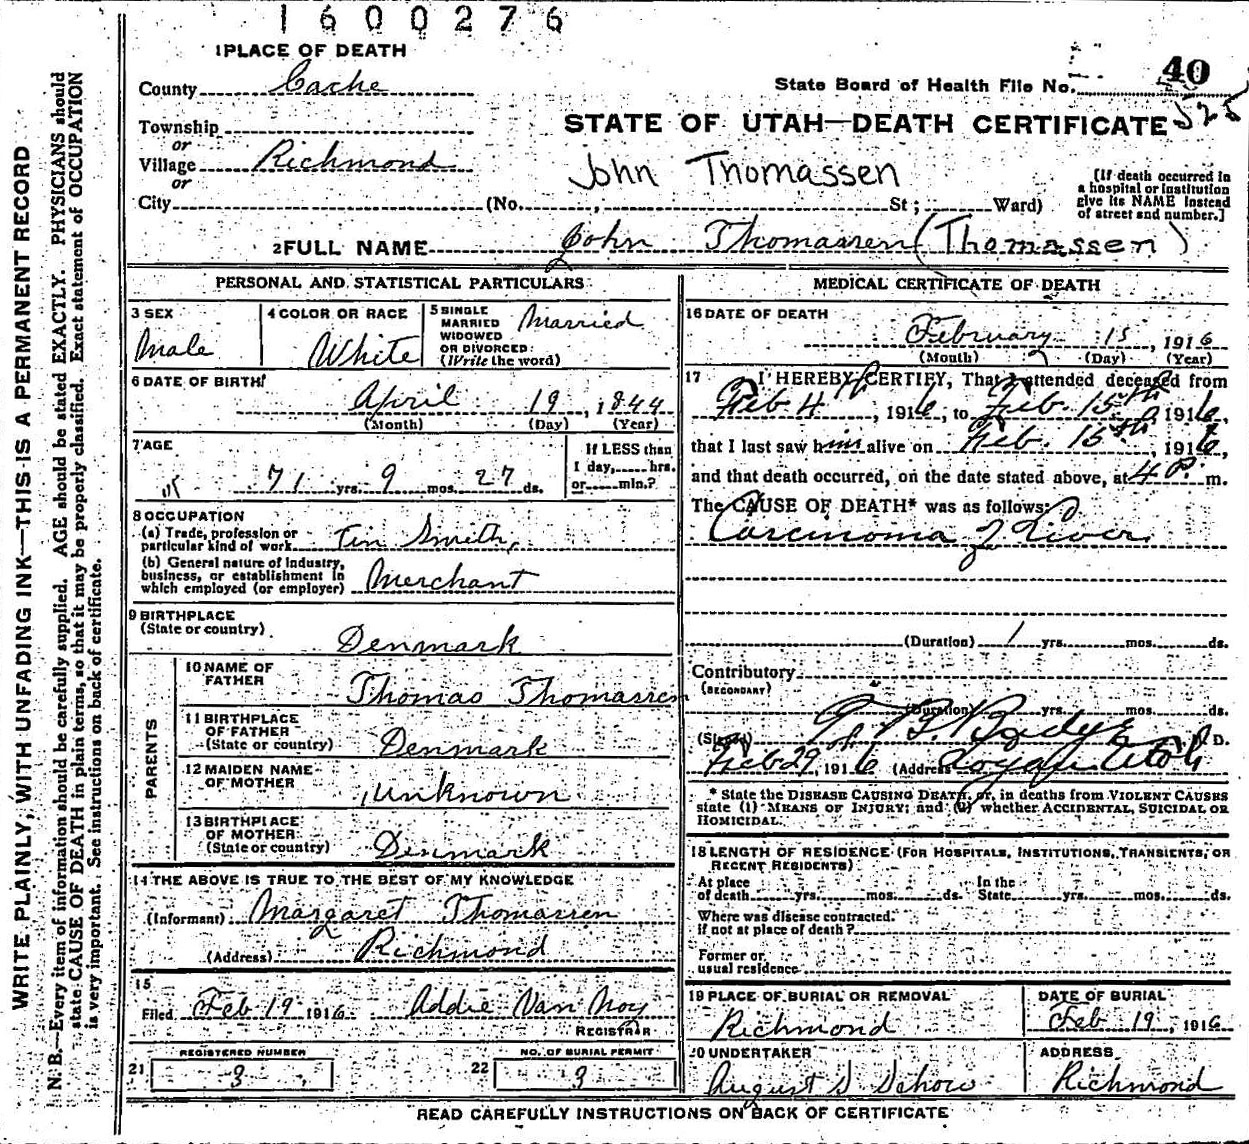 1600276
1 PLACE OF DEATH
County Cache
State Board of Health File No. 40
525
Township
or
Village Richmond
or
City (No. , St ; Ward)
STATE OF UTAH—DEATH CERTIFICATE
John Thomassen
[If death occurred in
a hospital or institution
give its NAME instead
of street and number.]
2 FULL NAME John Thomassen (Thomassen)
PERSONAL AND STATISTICAL PARTICULARS
3 SEX
Male
4 COLOR OR RACE
White
5 SINGLE
MARRIED
WIDOWED
OR DIVORCED
(Write the word)
Married
6 DATE OF BIRTH
April 19, 1844
(Month) (Day) (Year)
7 AGE
71 yrs. 9 mos. 27 ds.
If LESS than
1 day, hrs.
or min.?
8 OCCUPATION
(a) Trade, profession or
particular kind of work Tin Smith,
(b) General nature of industry,
business, or establishment in
which employed (or employer) Merchant
9 BIRTHPLACE
(State or country)
Denmark
PARENTS
10 NAME OF
FATHER
Thomas Thomassen
11 BIRTHPLACE
OF FATHER
(State or country)
Denmark
12 MAIDEN NAME
OF MOTHER
Unknown
13 BIRTHPLACE
OF MOTHER
(State or country)
Denmark
14 THE ABOVE IS TRUE TO THE BEST OF MY KNOWLEDGE
(Informant) Margaret Thomassen
(Address) Richmond
15
Filed Feb 19 1916 Addie Van Noy
REGISTRAR
21 REGISTERED NUMBER
3
22 NO. OF BURIAL PERMIT
3
MEDICAL CERTIFICATE OF DEATH
16 DATE OF DEATH
February 15, 1916
(Month) (Day) (Year)
17 I HEREBY CERTIFY, That I attended deceased from
Feb 4th, 1916, to Feb. 15th, 1916,
that I last saw him alive on Feb. 15th, 1916,
and that death occurred, on the date stated above, at 4 P. m.
The CAUSE OF DEATH* was as follows:
Carcinoma of Liver
(Duration) 1 yrs. mos. ds.
Contributory
(SECONDARY)
(Duration) yrs. mos. ds.
(Signed) M. D.
Feb 29, 1916 (Address) Logan Utah
* State the DISEASE CAUSING DEATH, or, in deaths from VIOLENT CAUSES
state (1) MEANS OF INJURY; and (2) whether ACCIDENTAL, SUICIDAL OR
HOMICIDAL.
18 LENGTH OF RESIDENCE (FOR HOSPITALS, INSTITUTIONS, TRANSIENTS, OR
RECENT RESIDENTS)
At place
of death yrs. mos. ds. In the
State yrs. mos. ds.
Where was disease contracted.
if not at place of death?
Former or
usual residence
19 PLACE OF BURIAL OR REMOVAL
Richmond
DATE OF BURIAL
Feb 19, 1916
20 UNDERTAKER
August S. Schow
ADDRESS
Richmond
READ CAREFULLY INSTRUCTIONS ON BACK OF CERTIFICATE
WRITE PLAINLY, WITH UNFADING INK—THIS IS A PERMANENT RECORD
N. B.—Every item of information should be carefully supplied. AGE should be stated EXACTLY. PHYSICIANS should
state CAUSE OF DEATH in plain terms, so that it may be properly classified. Exact statement of OCCUPATION
is very important. See instructions on back of certificate.